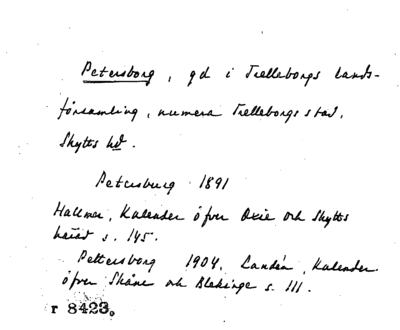 Petersborg, gd i Trelleborgs lands-
församling, numera Trelleborgs stad,
Skytts hd.
Petersburg 1891
Hallmer, Kalender öfver Oxie och Skytts
härad s. 145.
Pettersborg 1904. Landén, Kalender
öfver Skåne och Blekinge s. 111.
r 8423.